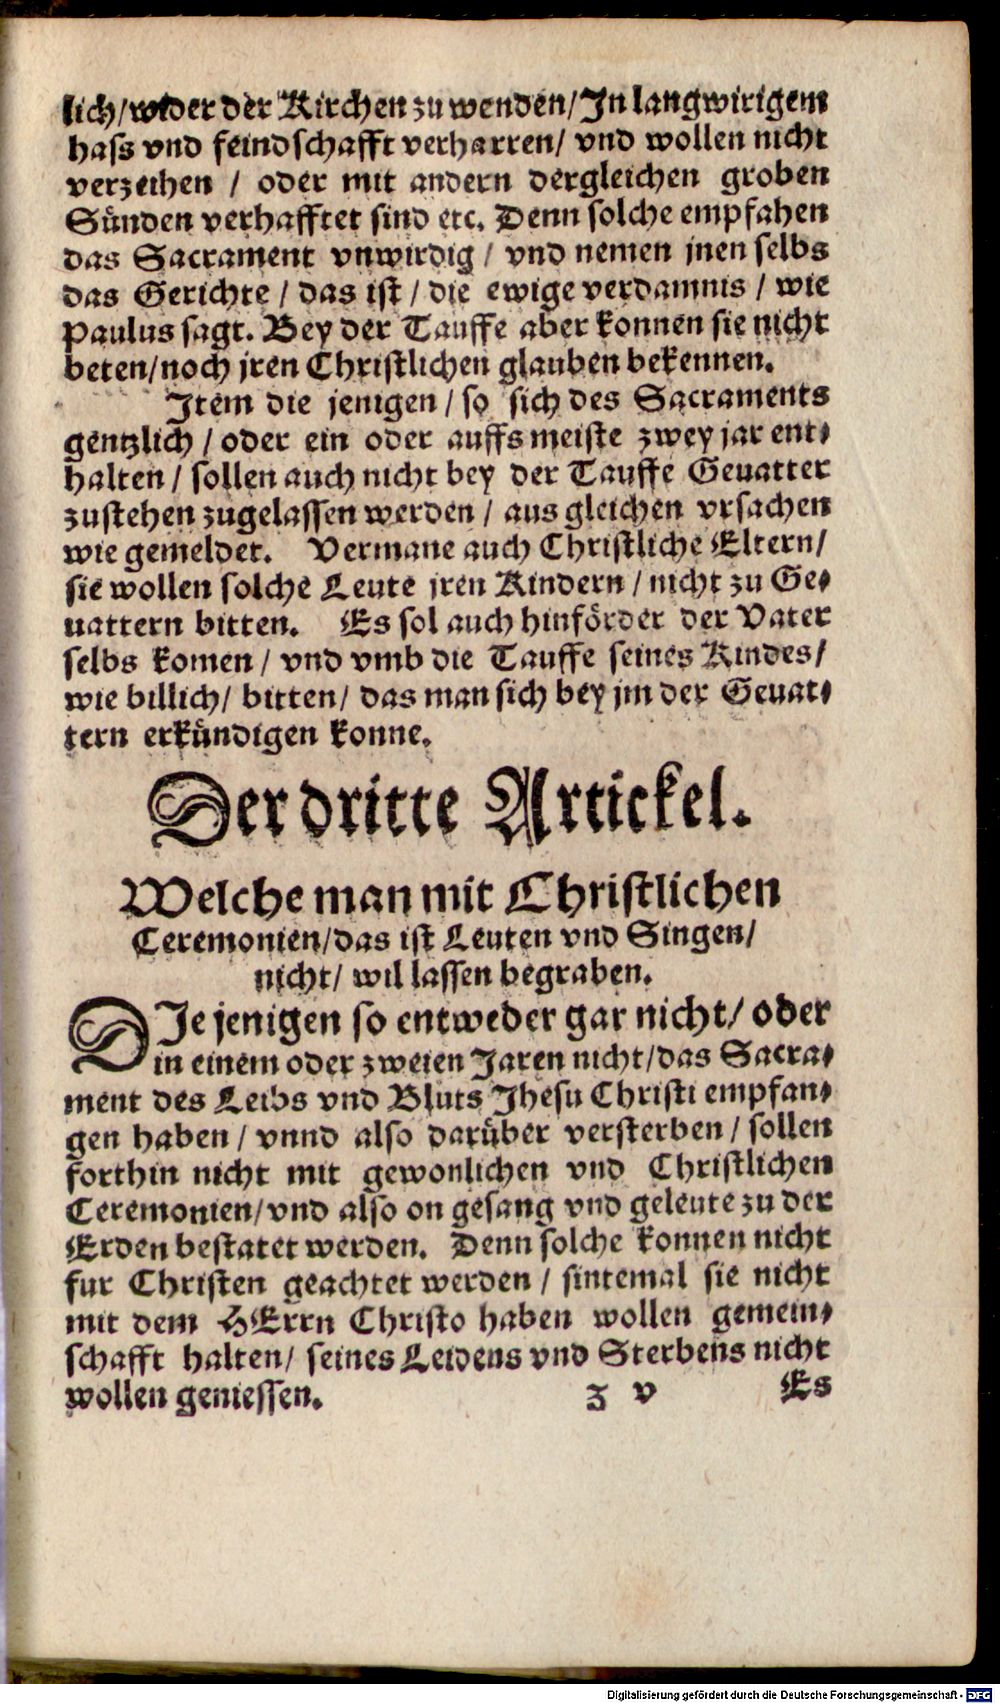 lich/wider der Kirchen zu wenden/Jn langwirigem
hass vnd feindschafft verharren/ vnd wollen nicht
verzeihen / oder mit andern dergleichen groben
Sünden verhafftet sind etc. Denn solche empfahen
das Sacrament vnwirdig / vnd nemen jnen selbs
das Gerichte / das ist / die ewige verdamnis / wie
Paulus sagt. Bey der Tauffe aber konnen sie nicht
beten/noch jren Christlichen glauben bekennen.
Jtem die jenigen / so sich des Sacraments
gentzlich / oder ein oder auffs meiste zwey jar ent⸗
halten / sollen auch nicht bey der Tauffe Geuatter
zustehen zugelassen werden / aus gleichen vrsachen
wie gemeldet. Vermane auch Christliche Eltern/
sie wollen solche Leute jren Kindern / nicht zu Ge⸗
uattern bitten. Es sol auch hinförder der Vater
selbs komen / vnd vmb die Tauffe seines Kindes/
wie billich/ bitten/ das man sich bey jm der Geuat⸗
tern erkündigen konne.
Der dritte Artickel.
Welche man mit Christlichen
Ceremonien/das ist Leuten vnd Singen/
nicht/ wil lassen begraben.
DJe jenigen so entweder gar nicht/ oder
in einem oder zweien Jaren nicht/das Sacra⸗
ment des Leibs vnd Bluts Jhesu Christi empfan⸗
gen haben / vnnd also darüber versterben / sollen
forthin nicht mit gewonlichen vnd Christlichen
Ceremonien/vnd also on gesang vnd geleute zu der
Erden bestatet werden. Denn solche konnen nicht
fur Christen geachtet werden / sintemal sie nicht
mit dem HErrn Christo haben wollen gemein⸗
schafft halten/ seines Leidens vnd Sterbens nicht
wollen geniessen. z v Es
Digitalisierung gefördert durch die Deutsche Forschungsgemeinschaft - DFG